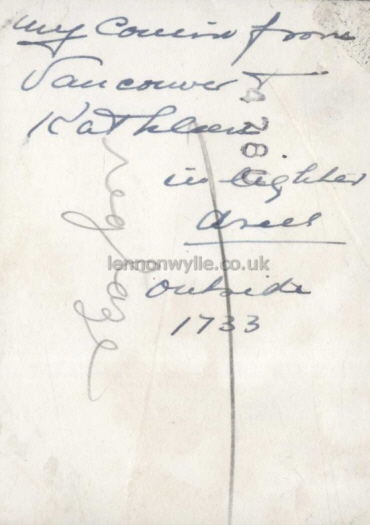 my Cousin from
Vancouver
Kathleen
in lighter
dress
outside
1733
lennonwylie.co.uk